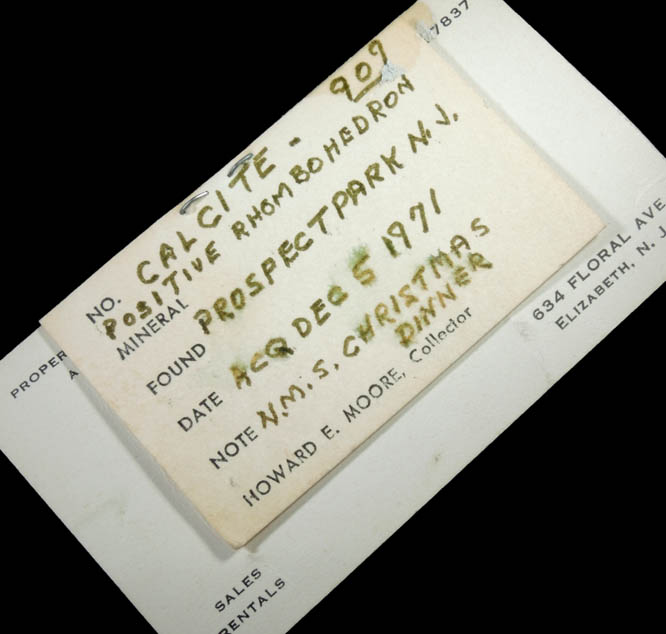 7837
909
NO. CALCITE -
POSITIVE RHOMBOHEDRON
MINERAL
FOUND PROSPECT PARK N.J.
DATE ACQ DEC 5 1971
NOTE N.M.S. CHRISTMAS
DINNER
HOWARD E. MOORE, Collector
634 FLORAL AVE
ELIZABETH, N. J
PROPER
A
SALES
RENTALS